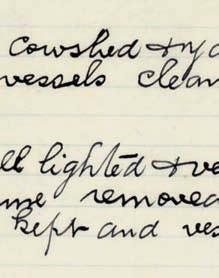 cowshed + ya
vessels clean
ll lighted + ve
me removed
kept and ves